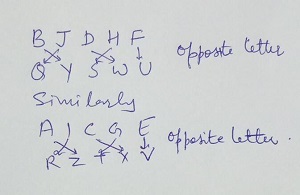 B J D H F
Q Y S W U opposite letter
Similarly
A I C G E
R Z T X V opposite letter.